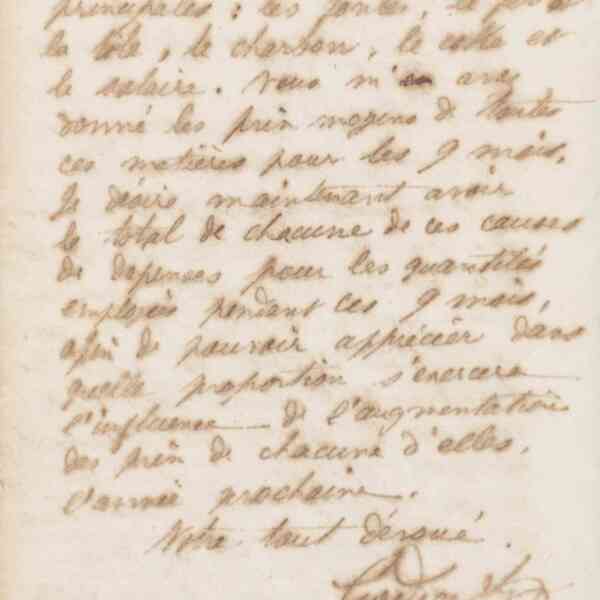 principales : les fontes, le fer et
la tôle, le charbon, le coke et
le salaire. Vous m'en avez
donné les prix moyens de toutes
ces matières pour les 9 mois.
Je désire maintenant avoir
le total de chacune de ces causes
de dépenses pour les quantités
employées pendant ces 9 mois,
afin de pouvoir apprécier dans
quelle proportion s'exercera
l'influence de l'augmentation
des prix de chacune d'elles,
l'année prochaine.
Votre tout dévoué.